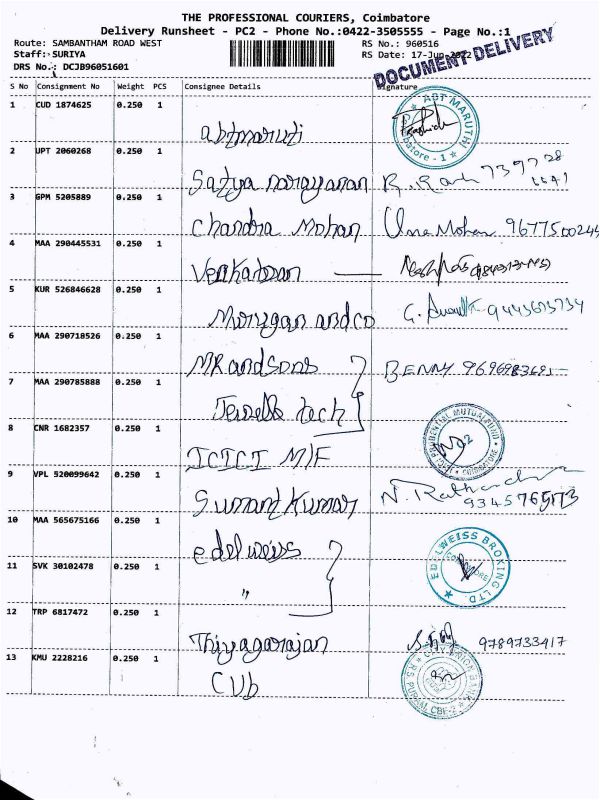 THE PROFESSIONAL COURIERS, Coimbatore
Delivery Runsheet - PC2 - Phone No.:0422-3505555 - Page No.:1
Route: SAMBANTHAM ROAD WEST RS No.: 960516
Staff: SURIYA RS Date: 17-Jun-2022
DRS No.: DCJB96051601 DOCUMENT DELIVERY
S No Consignment No Weight PCS Consignee Details Signature
1 CUD 1874625 0.250 1 abtmaruti ABT MARUTHI
2 UPT 2060268 0.250 1 Satya narayanan
3 GPM 5205889 0.250 1 Chandra Mohan Uma Mohan 9677500245
4 MAA 290445531 0.250 1 Venkatesan
5 KUR 526846628 0.250 1 Murugan andco
6 MAA 290718526 0.250 1 MR andsons BENNY
7 MAA 290785888 0.250 1 tech
8 CNR 1682357 0.250 1 ICICI M/F PRUDENTIAL MUTUAL FUND COIMBATORE
9 VPL 520099642 0.250 1 Sumant Kumar
10 MAA 565675166 0.250 1 edelweiss EDELWEISS BROKING LTD.
11 SVK 30102478 0.250 1 "
12 TRP 6817472 0.250 1 Thiyagarajan 9789733417
13 KMU 2228216 0.250 1 CUb